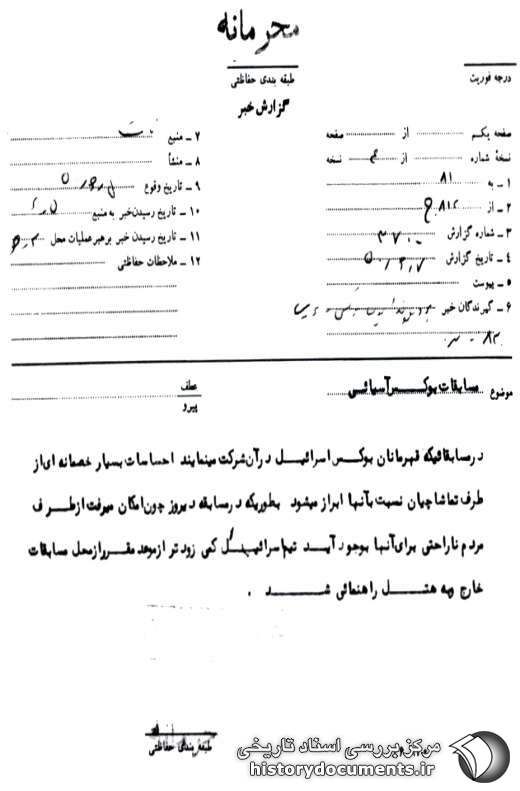 محرمانه
درجه فوریت
طبقه بندی حفاظتی
گزارش خبر
صفحه یکم از صفحه
نسخهٔ شماره از نسخه
۱ - به ۸۱
۲ - از
۳ - شماره گزارش
۴ - تاریخ گزارش
۵ - پیوست
۶ - گیرندگان خبر
۷ - منبع
۸ - منشأ
۹ - تاریخ وقوع
۱۰ - تاریخ رسیدن خبر به منبع
۱۱ - تاریخ رسیدن خبر به رهبر عملیات محل
۱۲ - ملاحظات حفاظتی
موضوع مسابقات بوکس آسیائی
عطف
پیرو
در مسابقاتیکه قهرمانان بوکس اسرائیل در آن شرکت مینمایند احساسات بسیار خصمانه ای از
طرف تماشاچیان نسبت بآنها ابراز میشود بطوریکه در مسابقه دیروز چون امکان میرفت از طرف
مردم ناراحتی برای آنها بوجود آید تیم اسرائیل کمی زودتر از موعد مقرر از محل مسابقات
خارج وبه هتل راهنمائی شد .
طبقه بندی حفاظتی
مرکز بررسی اسناد تاریخی
historydocuments.ir